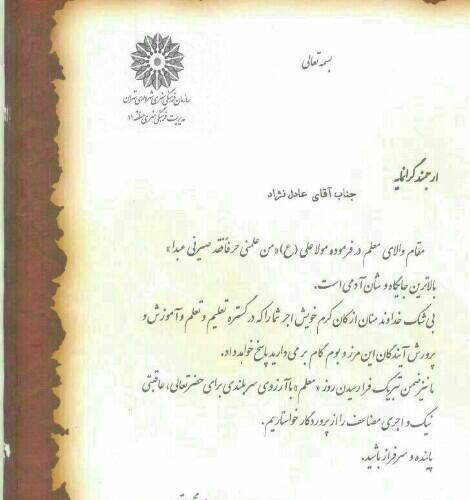 بسمه تعالی
سازمان فرهنگی هنری شهرداری تهران
مدیریت فرهنگی هنری منطقه ۱۱
ارجمند گرانمایه
جناب آقای عادل نژاد
مقام والای معلم در فرموده مولا علی (ع) «من علمنی حرفاً فقد صیرنی عبدا»
بالاترین جایگاه و شأن آدمی است.
بی شک خداوند منان از کان کرم خویش اجر شما را که در گستره تعلیم و تعلم و آموزش و
پرورش آیندگان این مرز و بوم گام بر می دارید پاسخ خواهد داد.
ما نیز ضمن تبریک فرا رسیدن روز «معلم» با آرزوی سربلندی برای حضرتعالی، عاقبتی
نیک و اجری مضاعف را از پروردگار خواستاریم.
پاینده و سرفراز باشید.